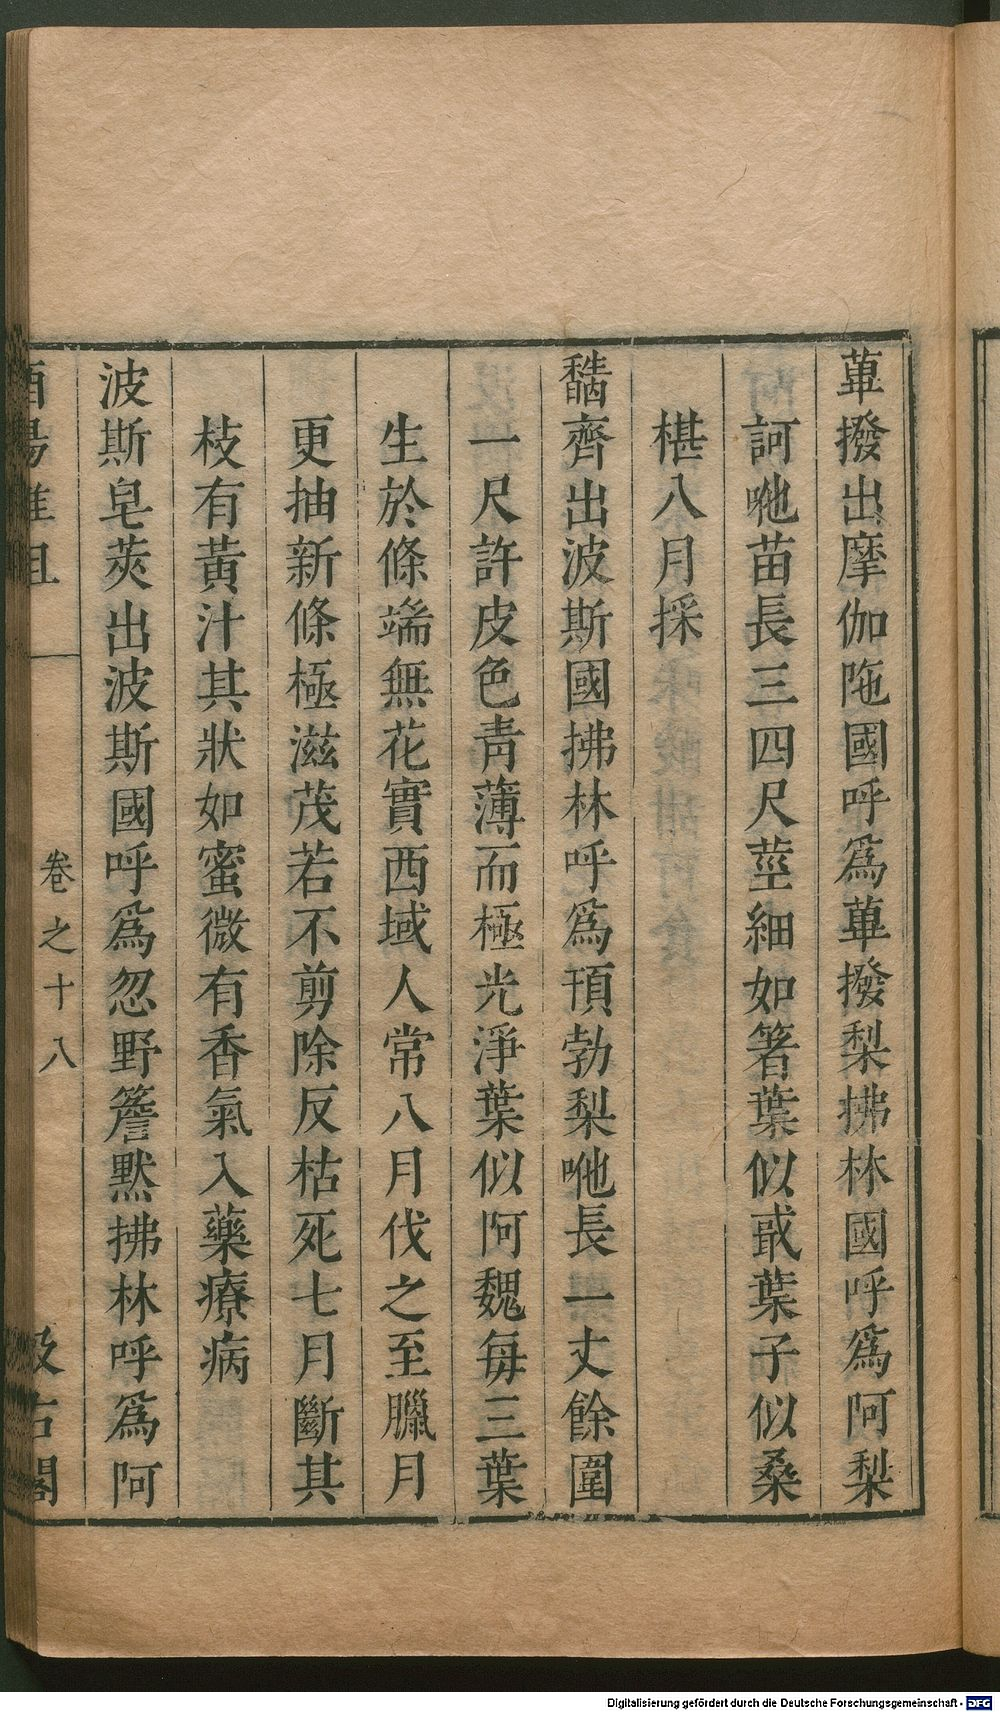 蓽撥出摩伽陁國呼爲蓽撥梨拂林國呼爲阿梨
訶咃苗長三四尺莖細如箸葉似蕺葉子似桑
椹八月採
䭱齊出波斯國拂林呼爲頇勃梨咃長一丈餘圍
一尺許皮色青薄而極光淨葉似阿魏每三葉
生於條端無花實西域人常八月伐之至臘月
更抽新條極滋茂若不剪除反枯死七月斷其
枝有黃汁其狀如蜜微有香氣入藥療病
波斯皂莢出波斯國呼爲忽野簷默拂林呼爲阿
酉陽雜俎
卷之十八
汲古閣
Digitalisierung gefördert durch die Deutsche Forschungsgemeinschaft - DFG